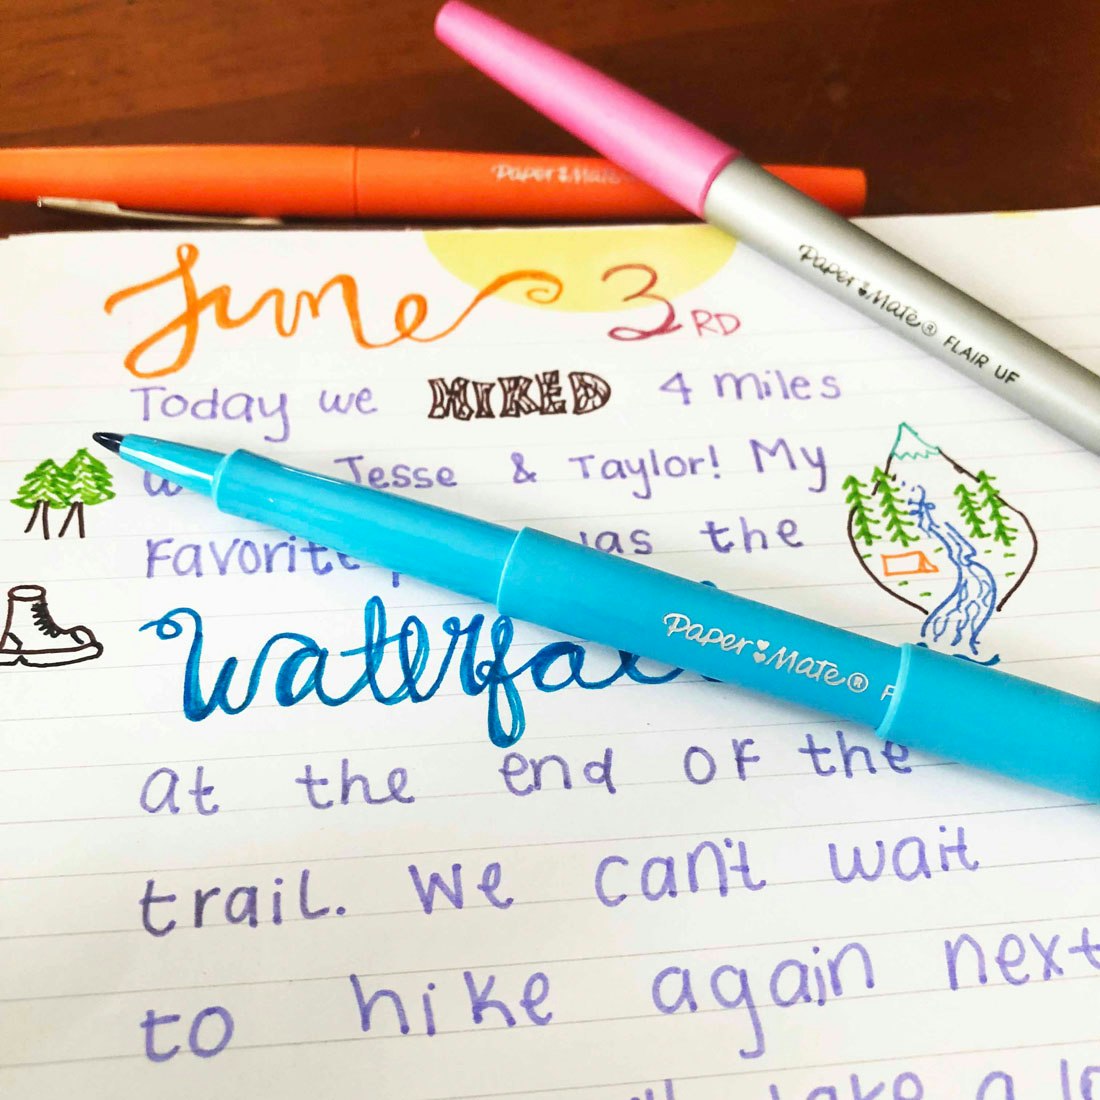 Paper Mate
Paper Mate® FLAIR UF
June 3RD
Today we HIKED 4 miles
Jesse & Taylor! My
Favorite the
Paper Mate®
at the end of the
trail. We can't wait
to hike again next